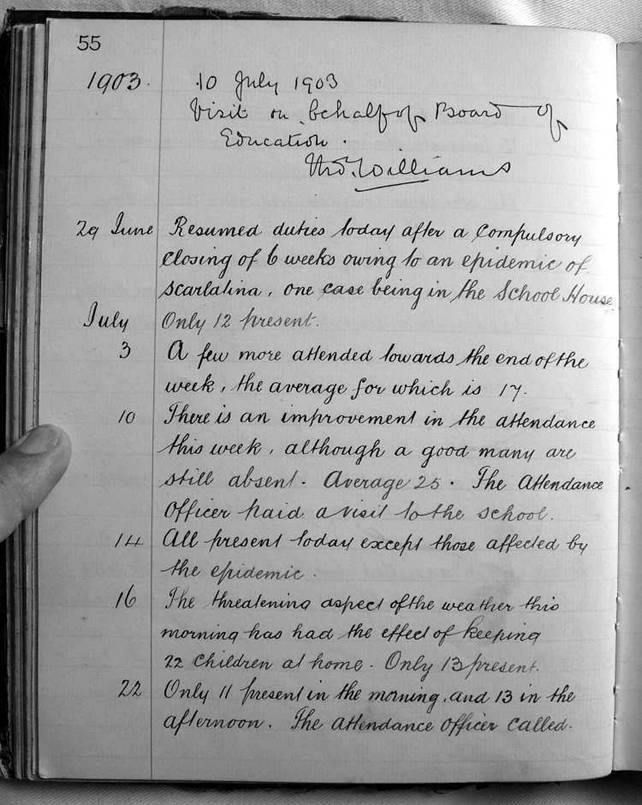 55
1903. 10 July 1903
Visit on behalf of Board of
Education.
Thos. Williams
29 June Resumed duties today after a compulsory
closing of 6 weeks owing to an epidemic of
scarlatina, one case being in the School House
July Only 12 present.
3 A few more attended towards the end of the
week, the average for which is 17.
10 There is an improvement in the attendance
this week, although a good many are
still absent. Average 25. The Attendance
Officer paid a visit to the school.
14 All present today except those affected by
the epidemic.
16 The threatening aspect of the weather this
morning has had the effect of keeping
22 children at home. Only 13 present.
22 Only 11 present in the morning, and 13 in the
afternoon. The Attendance Officer called.